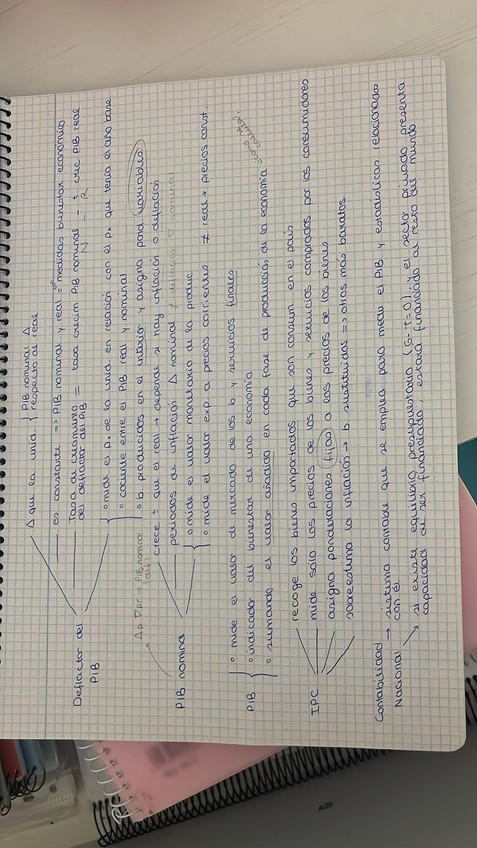 Δ que la unid. { PIB nominal Δ
respecto al real
es constante => PIB nominal y real = medidas bienestar económico
Deflactor del
PIB
Tasa de crecimiento = tasa crecim PIB nominal - t crec PIB real
del deflactor del PIB
N - R
mide el p. de la unid en relación con el p. que tenía el año base
cociente entre el PIB real y nominal
b producidos en el interior y asigna pond variables
Δp ∇pr → PIB nominal
crece ± que el real → depende si hay inflación o deflación
periodos de inflación Δ nominal / deflación ∇ nominal
PIB nominal
mide el valor monetario de la produc
mide el valor exp a precios corrientes ≠ real → precios const.
mide el valor de mercado de los b y servicios finales
PIB
indicador del bienestar de una economía
sumando el valor añadido en cada fase de producción de la economía
recoge los bienes importados que son consum en el país
IPC
mide solo los precios de los bienes y servicios comprados por los consumidores
asigna ponderaciones fijas a los precios de los bienes
sobreestima la inflación → b. sustituidos => otros más baratos
Contabilidad
Nacional
→ sistema contable que se emplea para medir el PIB y estadísticas relacionadas
con él
→ si existe equilibrio presupuestario (G-T=0) y el sector privado presenta
capacidad de ser financiado, estará financiando al resto del mundo